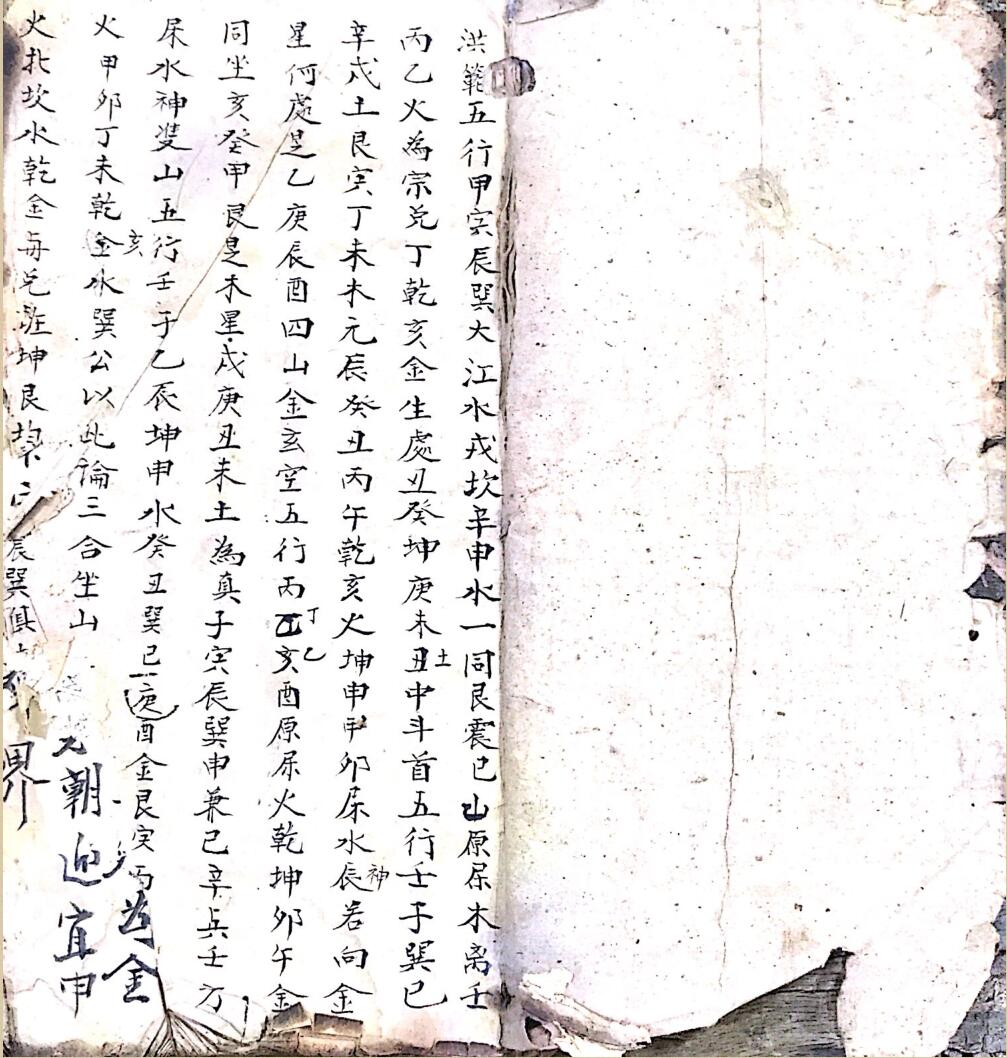 洪範五行甲寅辰巽大江水戌坎辛申水一同艮震巳山原屬木离壬
丙乙火為宗兌丁乾亥金生處丑癸坤庚未丑土中斗首五行壬子巽巳
辛戌土艮寅丁未木元辰癸丑丙午乾亥火坤申甲卯屎水辰神若向金
星何處是乙庚辰酉四山金玄空五行丙丁乙亥酉原屎火乾坤卯午金
同坐亥癸甲艮是木星戌庚丑未土為真子寅辰巽申兼巳辛兵壬方
屎水神雙山五行壬子乙辰坤申水癸丑巽巳庚酉金艮寅丙
火甲卯丁未乾亥金水巽公以此論三合坐山
火北坎水乾金每兌坤艮
辰巽俱
為金
元朝迎宜申
界